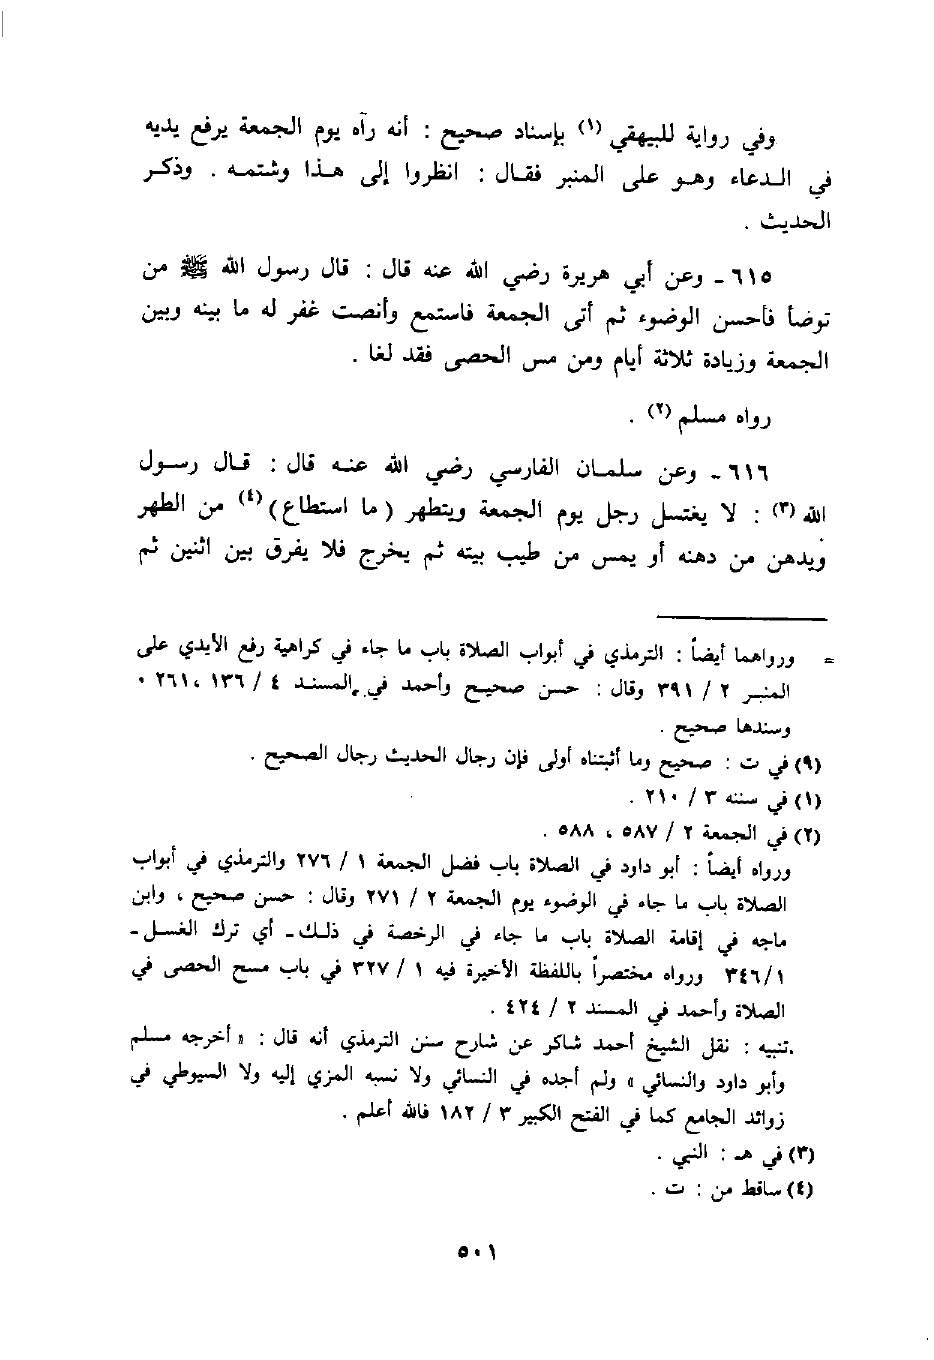 وفي رواية للبيهقي (١) بإسناد صحيح : أنه رآه يوم الجمعة يرفع يديه
في الـدعاء وهـو على المنبر فقـال : انظروا إلى هـذا وشتمـه . وذكـر
الحديث .
٦١٥ ـ وعن أبي هريرة رضي الله عنه قال : قال رسول الله ﷺ من
توضأ فأحسن الوضوء ثم أتى الجمعة فاستمع وأنصت غفر له ما بينه وبين
الجمعة وزيادة ثلاثة أيام ومن مس الحصى فقد لغا .
رواه مسلم (٢) .
٦١٦ ـ وعن سلمـان الفارسي رضي الله عنـه قال : قـال رسـول
الله (٣) : لا يغتسل رجل يوم الجمعة ويتطهر ( ما استطاع ) (٤) من الطهر
ويدهن من دهنه أو يمس من طيب بيته ثم يخرج فلا يفرق بين اثنين ثم
= ورواهما أيضاً : الترمذي في أبواب الصلاة باب ما جاء في كراهية رفع الأيدي على
المنبـر ٢ / ٣٩١ وقال : حسن صحيـح وأحمد في المسنـد ٤ / ١٣٦ ، ٢٦١ ٠
وسندها صحيح .
(٩) في ت : صحيح وما أثبتناه أولى فإن رجال الحديث رجال الصحيح .
(١) في سننه ٣ / ٢١٠ .
(٢) في الجمعة ٢ / ٥٨٧ ، ٥٨٨ .
ورواه أيضاً : أبو داود في الصلاة باب فضل الجمعة ١ / ٢٧٦ والترمذي في أبواب
الصلاة باب ما جاء في الوضوء يوم الجمعة ٢ / ٢٧١ وقال : حسن صحيح ، وابن
ماجه في إقامة الصلاة باب ما جاء في الرخصة في ذلـك ـ أي ترك الغسل ـ
٣٤٦/١ ورواه مختصراً باللفظة الأخيرة فيه ١ / ٣٢٧ في باب مسح الحصى في
الصلاة وأحمد في المسند ٢ / ٤٢٤ .
.تنبيه : نقل الشيخ أحمد شاكر عن شارح سنن الترمذي أنه قال : « أخرجه مسلم
وأبو داود والنسائي » ولم أجده في النسائي ولا نسبه المزي إليه ولا السيوطي في
زوائد الجامع كما في الفتح الكبير ٣ / ١٨٢ فالله أعلم .
(٣) في هـ : النبي .
(٤) ساقط من : ت .
٥٠١